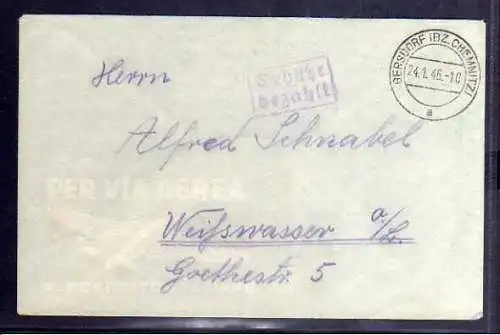 GERSDORF (BZ. CHEMNITZ)
24.1.46.-10
a
Gebühr
bezahlt
Herrn
Alfred Schnabel
PER VIA AEREA
Weißwasser o/L.
Goethestr. 5